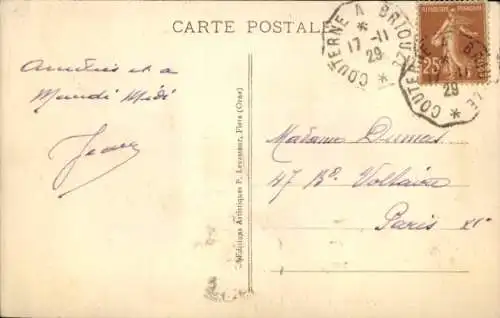 CARTE POSTALE
COUTERNE A BRIOUZE
17 -11
29
25
29
Amitiés et à
Mardi Midi
Jean
Madame Dumas
47 Bd Voltaire
Paris XIe
Editions Artistiques P. Levasseur, Flers (Orne)